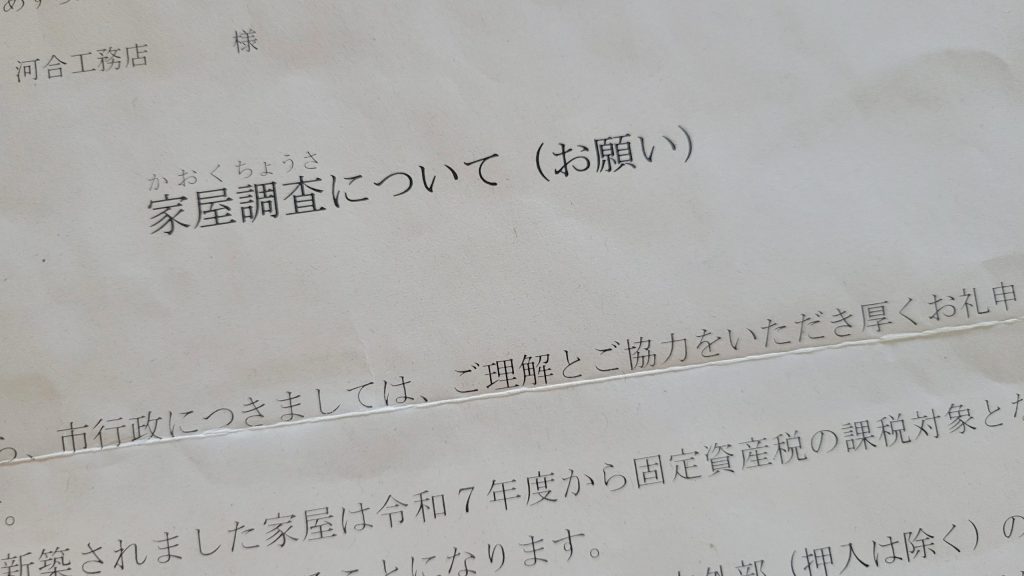 河合工務店　　　様
かおくちょうさ
家屋調査について（お願い）
、市行政につきましては、ご理解とご協力をいただき厚くお礼申
。
新築されました家屋は令和７年度から固定資産税の課税対象とな
ことになります。
外部（押入は除く）の